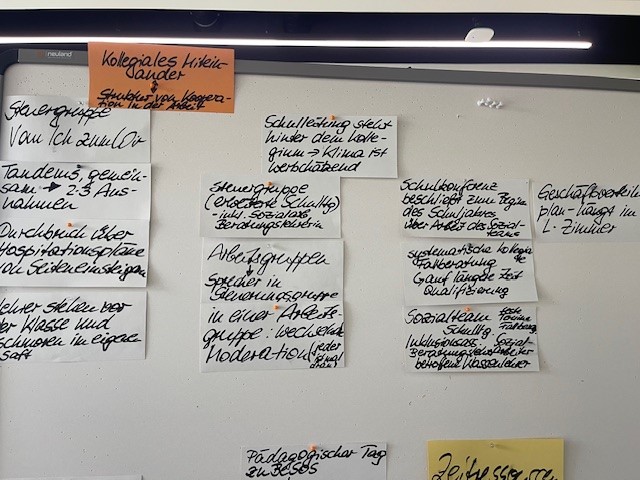 neuland
Kollegiales Mitein-
ander
Struktur von Koopera-
tion in der Arbeit
Steuergruppe
Vom Ich zum Wir
Tandems, gemein-
sam → 2-3 Aus-
nahmen
Durchbruch über
Hospitationspläne
von Seiteneinsteigern
Lehrer stehen vor
der Klasse und
schmoren im eigenen
Saft
Schulleitung steht
hinter dem Kolle-
gium → Klima ist
wertschätzend
Steuergruppe
(erweiterte Schulltg)
- inkl. Sozialarb.
Beratungslehrerin
Arbeitsgruppen
Sprecher in
Steuerungsgruppe
in einer Arbeits-
gruppe: wechselnde
Moderation (jeder
ist mal
dran)
Schulkonferenz
beschließt zum Beginn
des Schuljahres
über Arbeit des Sozial-
teams
Geschäftsverteil
plan - hängt im
L. Zimmer
systematische kollegiale
Fallberatung
auf längere Zeit
Qualifizierung
Sozialteam feste
Termine
Schulltg Fallberatg
Inklusionsb. Sozial-
Beratungslehrer arbeiter
betroffene Klassenlehrer
Pädagogischer Tag
zu BESOS